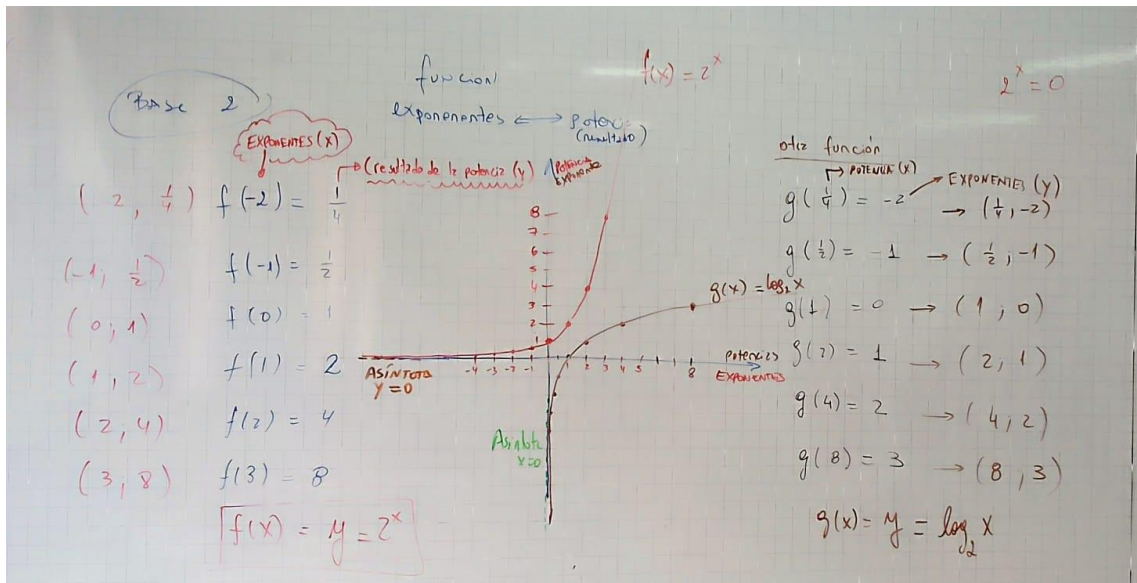 Base 2
función
f(x) = 2^x
2^x = 0
exponenentes ↔ potenc
(resultado)
EXPONENTES (X)
(resultado de la potencia (y)
Potencia
Exponente
(2, 1/4) f(-2) = 1/4
(-1, 1/2) f(-1) = 1/2
(0, 1) f(0) = 1
(1, 2) f(1) = 2
(2, 4) f(2) = 4
(3, 8) f(3) = 8
f(x) = y = 2^x
8
7
6
5
4
3
2
1
-4 -3 -2 -1 1 2 3 4 5 8
ASÍNTOTA
y = 0
Asíntota
x=0
g(x) = log₂ x
potencias
EXPONENTES
otra función
POTENCIA (X)
EXPONENTES (y)
g(1/4) = -2 → (1/4, -2)
g(1/2) = -1 → (1/2, -1)
g(1) = 0 → (1, 0)
g(2) = 1 → (2, 1)
g(4) = 2 → (4, 2)
g(8) = 3 → (8, 3)
g(x) = y = log₂ x